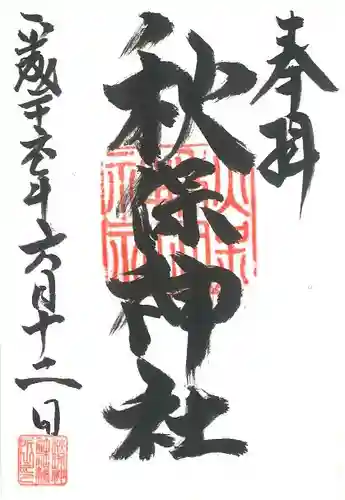 奉拝
秋保神社
平成二十五年六月十二日